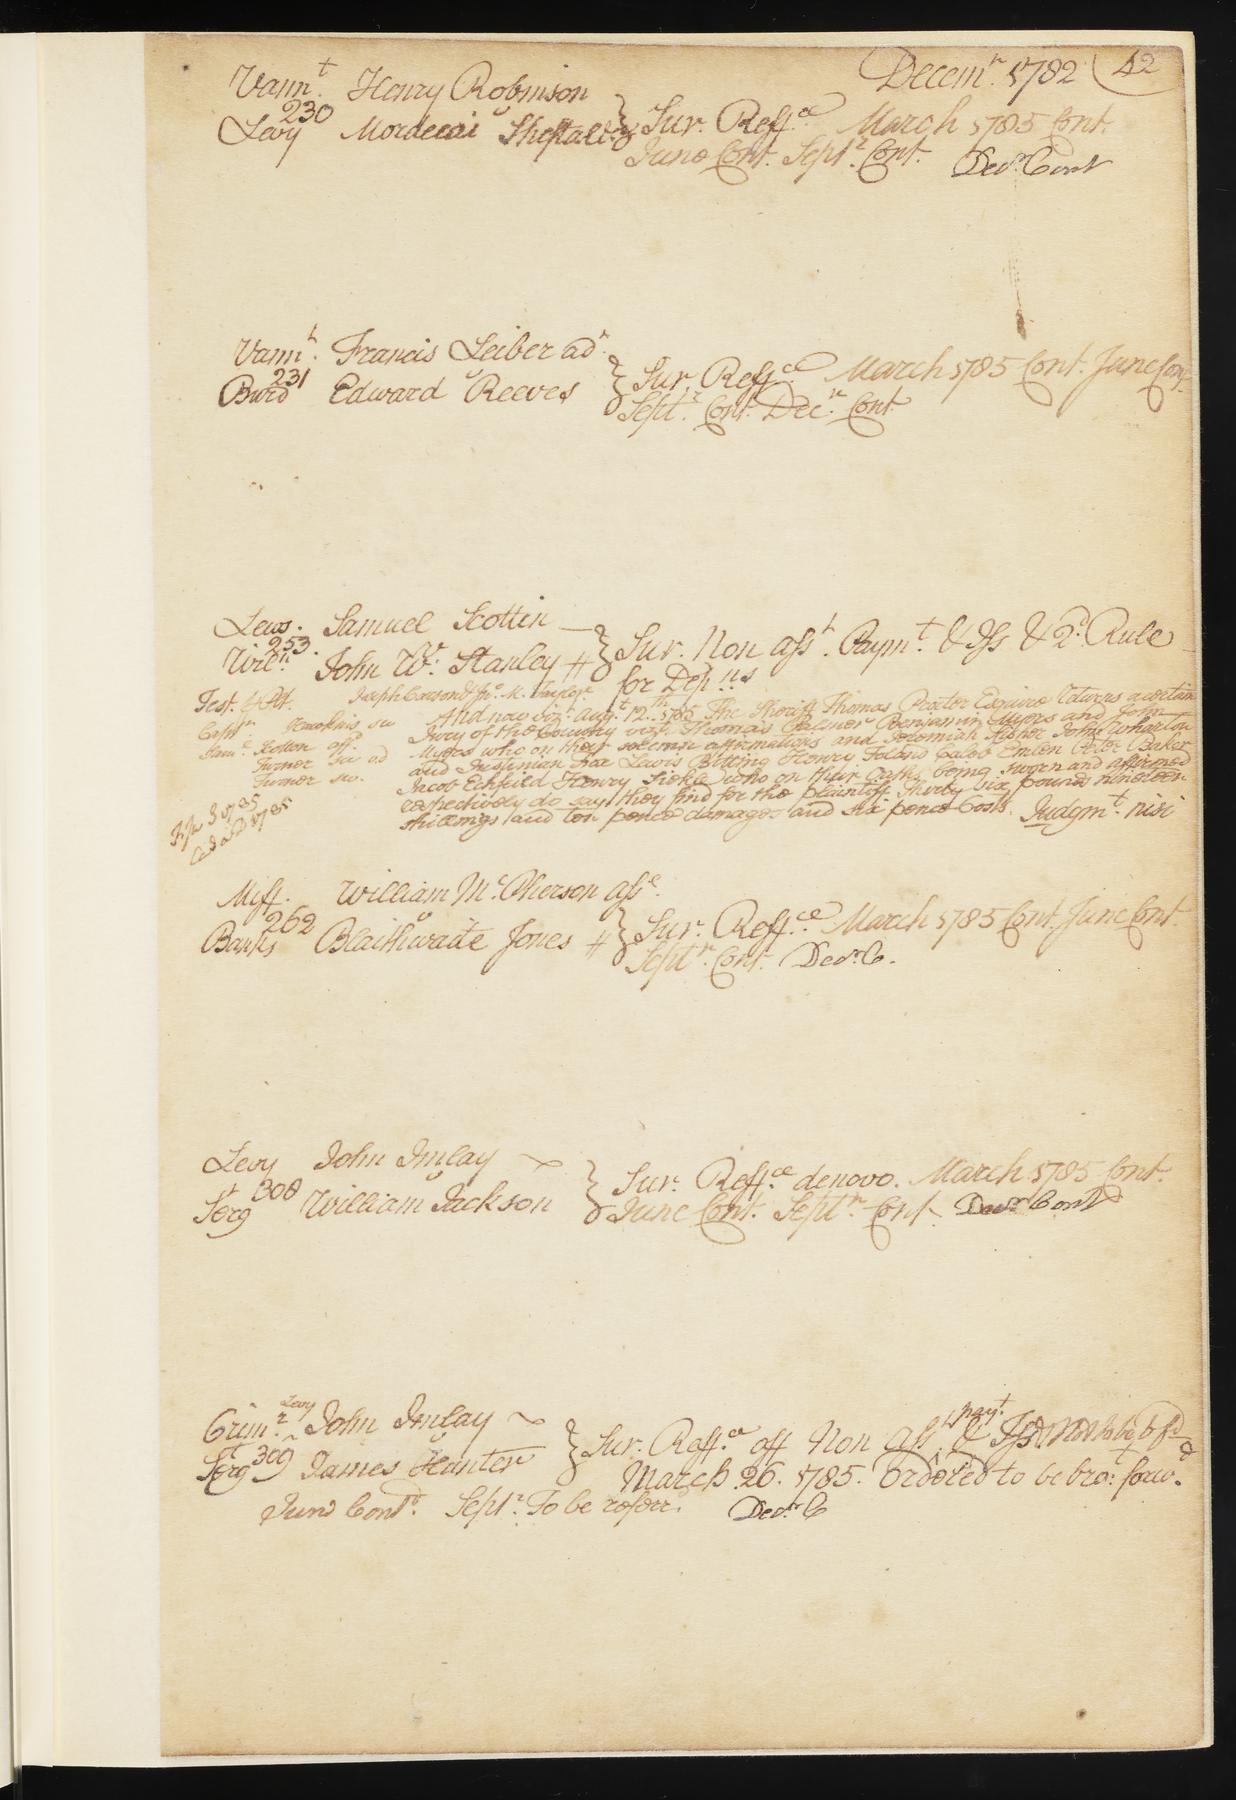 Decem.r 1782 42
Vann.t Henry Robinson
230
Levy Mordecai Sheftall } Sur. Reff.ce March 1785 Cont.
June Cont. Sept.r Cont. Dec.r Cont
Vann.t Francis Leiber ad.r
231
Burd Edward Reeves } Sur. Reff.ce March 1785 Cont. June Cont.
Sept.r Cont. Dec.r Cont
Lews. Samuel Scottin
253.
Wilc.n John W. Stanley # } Sur. Non Ass.t Paym.t & Iss & 2.d Rule
for Dep.ns
Test. Joseph Carson & Jno. M. Taylor
And now viz.t Aug.t 12.th 1785 The Sheriff Thomas Procter Esquire returns a certain
Capt. Hawkins sw Jury of the Country viz.t Thomas Palmer Benjamin Myers and John
Myers who on their solemn affirmations and Jeremiah Fisher John Wharton
Turner and Justinian Fox Lewis Bitting Henry Toland Caleb Emlen Peter Baker
Turner sw. Jacob Eckfield Henry who on their Oaths being sworn and affirmed
respectively do say they find for the plaintiff thirty six pounds nineteen
shillings and ten pence damages and six pence Costs. Judgm.t nisi
Miff. William McPherson ass.e
262
Banks Blaithwaite Jones # } Sur. Reff.ce March 1785 Cont. June Cont.
Sept.r Cont. Dec.r C.
Levy John Imlay
308
Serg.t William Jackson } Sur. Reff.ce denovo. March 1785 Cont.
June Cont. Sept.r Cont. Dec.r Cont
Levy
Crim.r John Imlay
309
Serg.t James Hunter } Sur. Reff.ce off Non Ass.t paym.t & Iss
March 26. 1785. Ordered to be bro.t forw.d
June Cont.d Sept.r To be referr.d Dec.r C